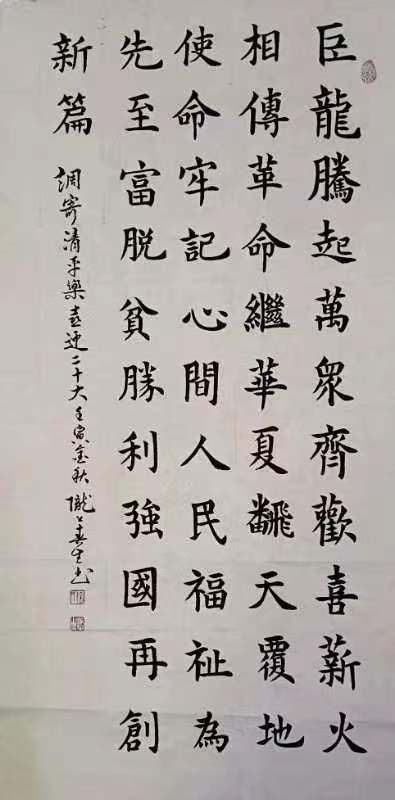 巨龍騰起萬衆齊歡喜薪火
相傳革命繼華夏飜天覆地
使命牢記心間人民福祉為
先至富脱貧勝利強國再創
新篇
調寄清平樂喜迎二十大壬寅金秋隴上生书